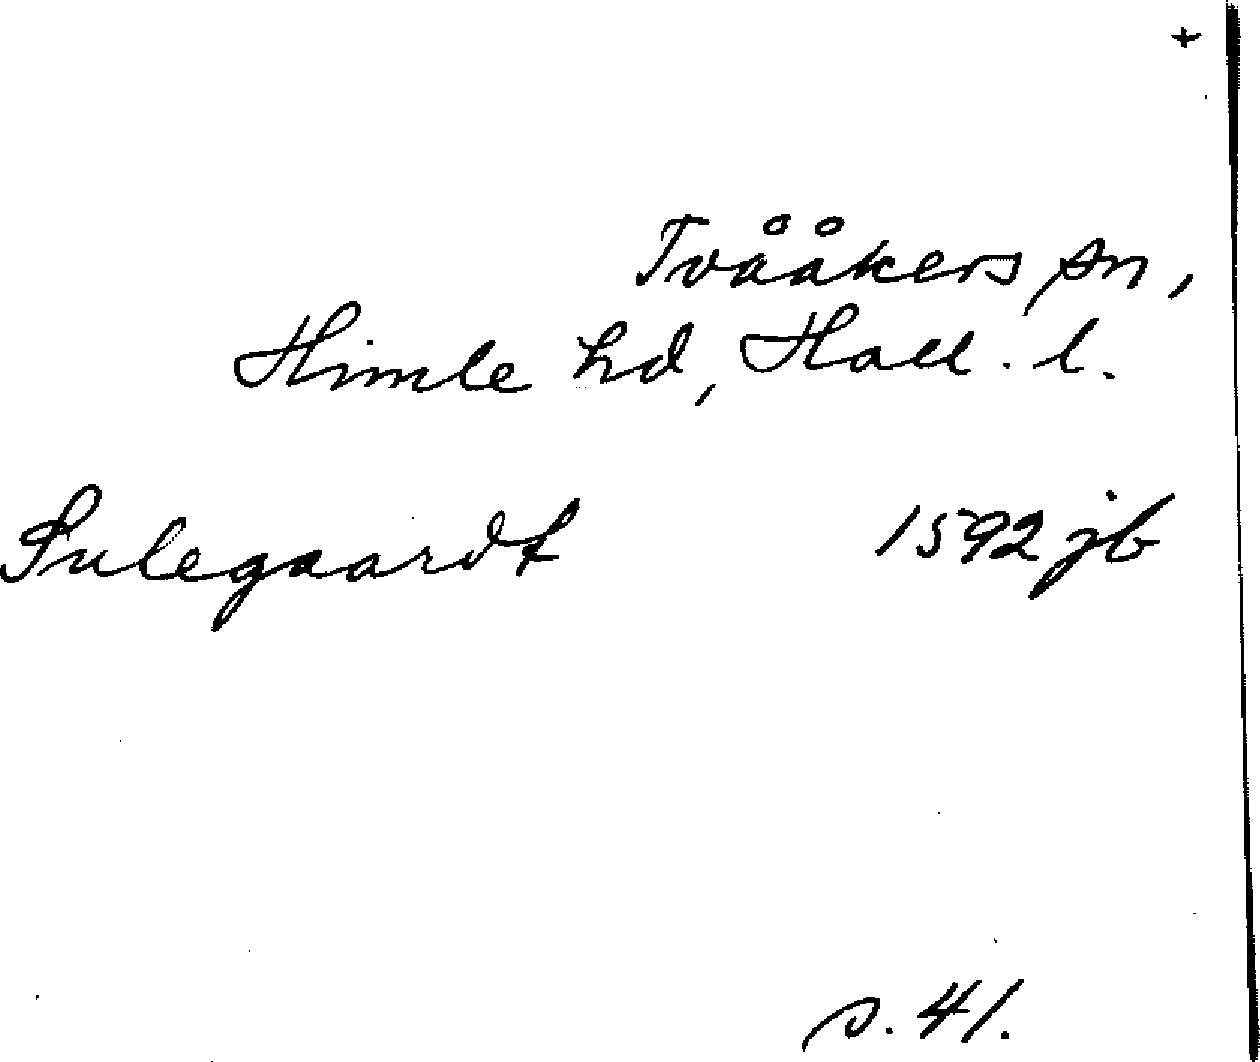 +
Tvååkers sn,
Himle hd, Hall. l.
Sulegaardt 1592 jb
s. 41.